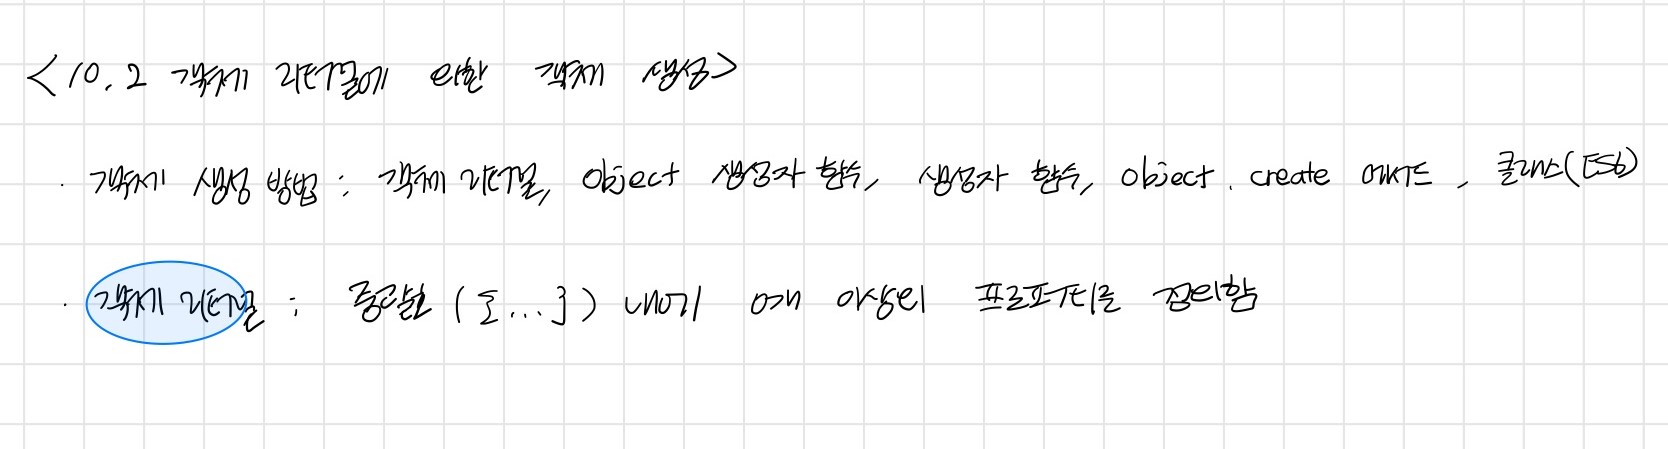 <10.2 객체 리터럴에 의한 객체 생성>
· 객체 생성 방법 : 객체 리터럴, Object 생성자 함수, 생성자 함수, Object.create 메서드, 클래스(ES6)
· 객체 리터럴 : 중괄호 ({...}) 내에 0개 이상의 프로퍼티를 정의함